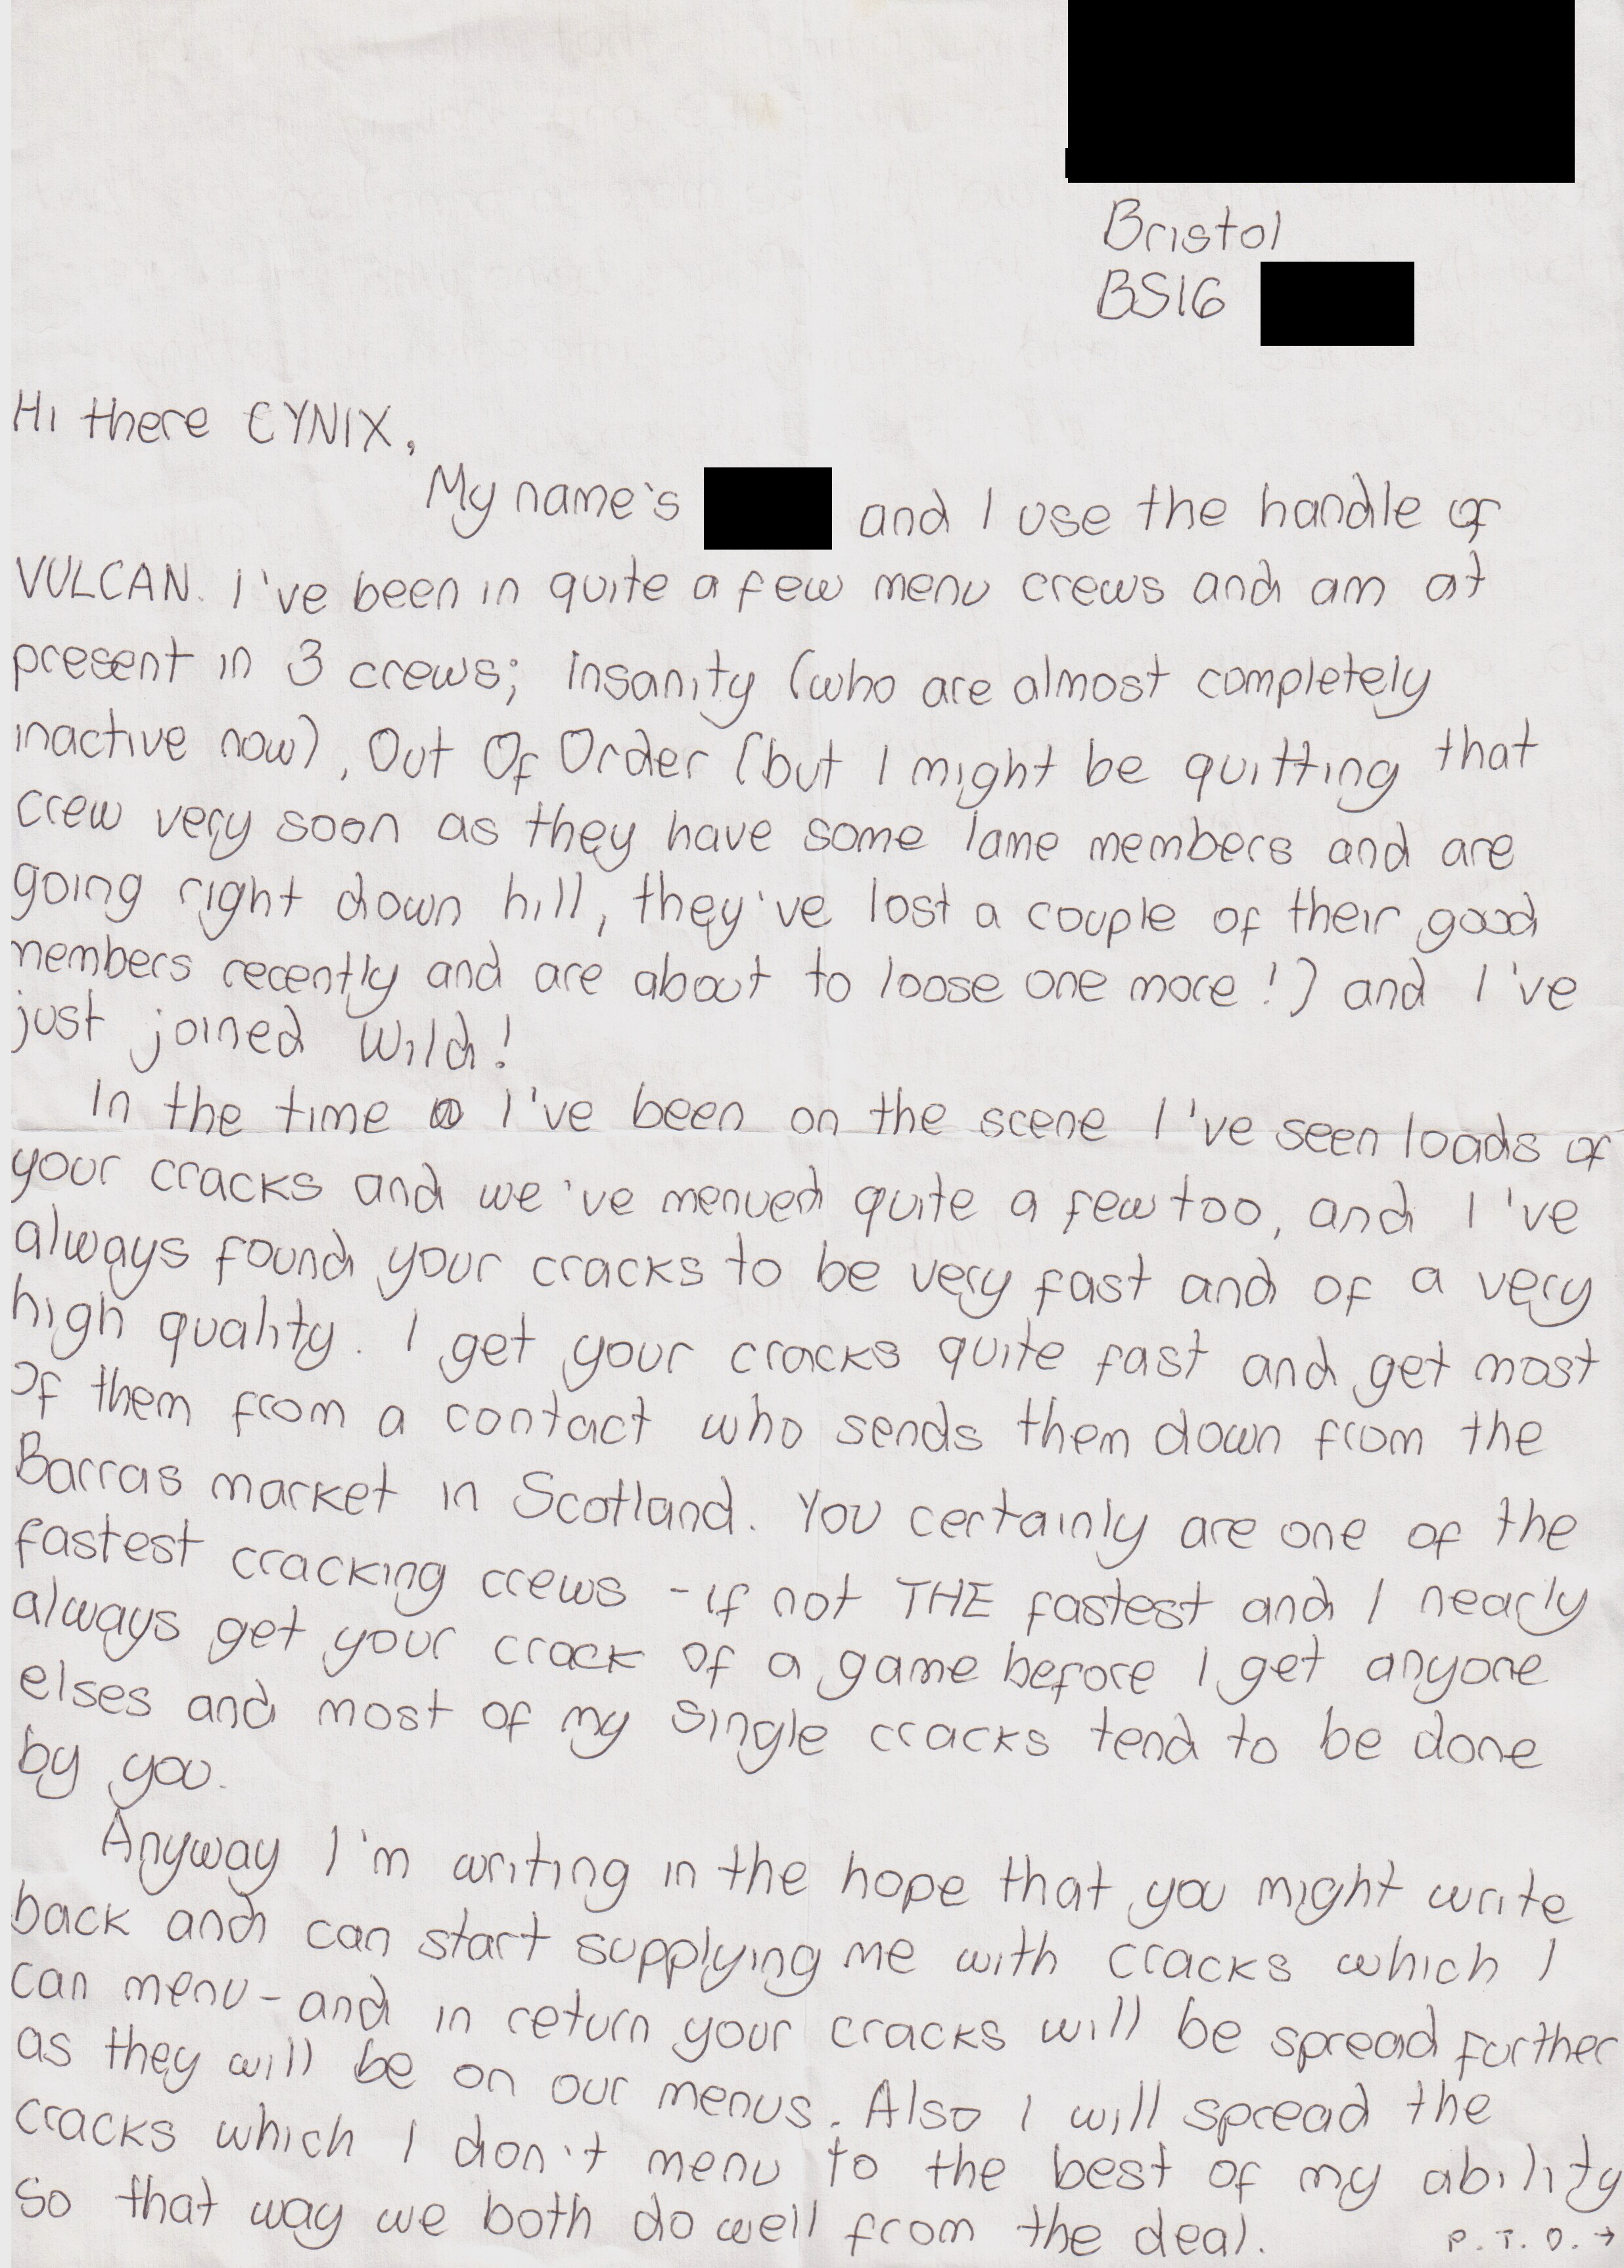 Bristol
BS16
Hi there CYNIX,
My name's and I use the handle of
VULCAN. I've been in quite a few menu crews and am at
present in 3 crews; Insanity (who are almost completely
inactive now), Out Of Order (but I might be quitting that
crew very soon as they have some lame members and are
going right down hill, they've lost a couple of their good
members recently and are about to loose one more!) and I've
just joined Wild!
In the time I've been on the scene I've seen loads of
your cracks and we've menued quite a few too, and I've
always found your cracks to be very fast and of a very
high quality. I get your cracks quite fast and get most
Of them from a contact who sends them down from the
Barras market in Scotland. You certainly are one of the
fastest cracking crews - if not THE fastest and I nearly
always get your crack of a game before I get anyone
elses and most of my single cracks tend to be done
by you.
Anyway I'm writing in the hope that you might write
back and can start supplying me with cracks which I
can menu - and in return your cracks will be spread further
as they will be on our menus. Also I will spread the
cracks which I don't menu to the best of my ability
so that way we both do well from the deal.
P.T.O. →